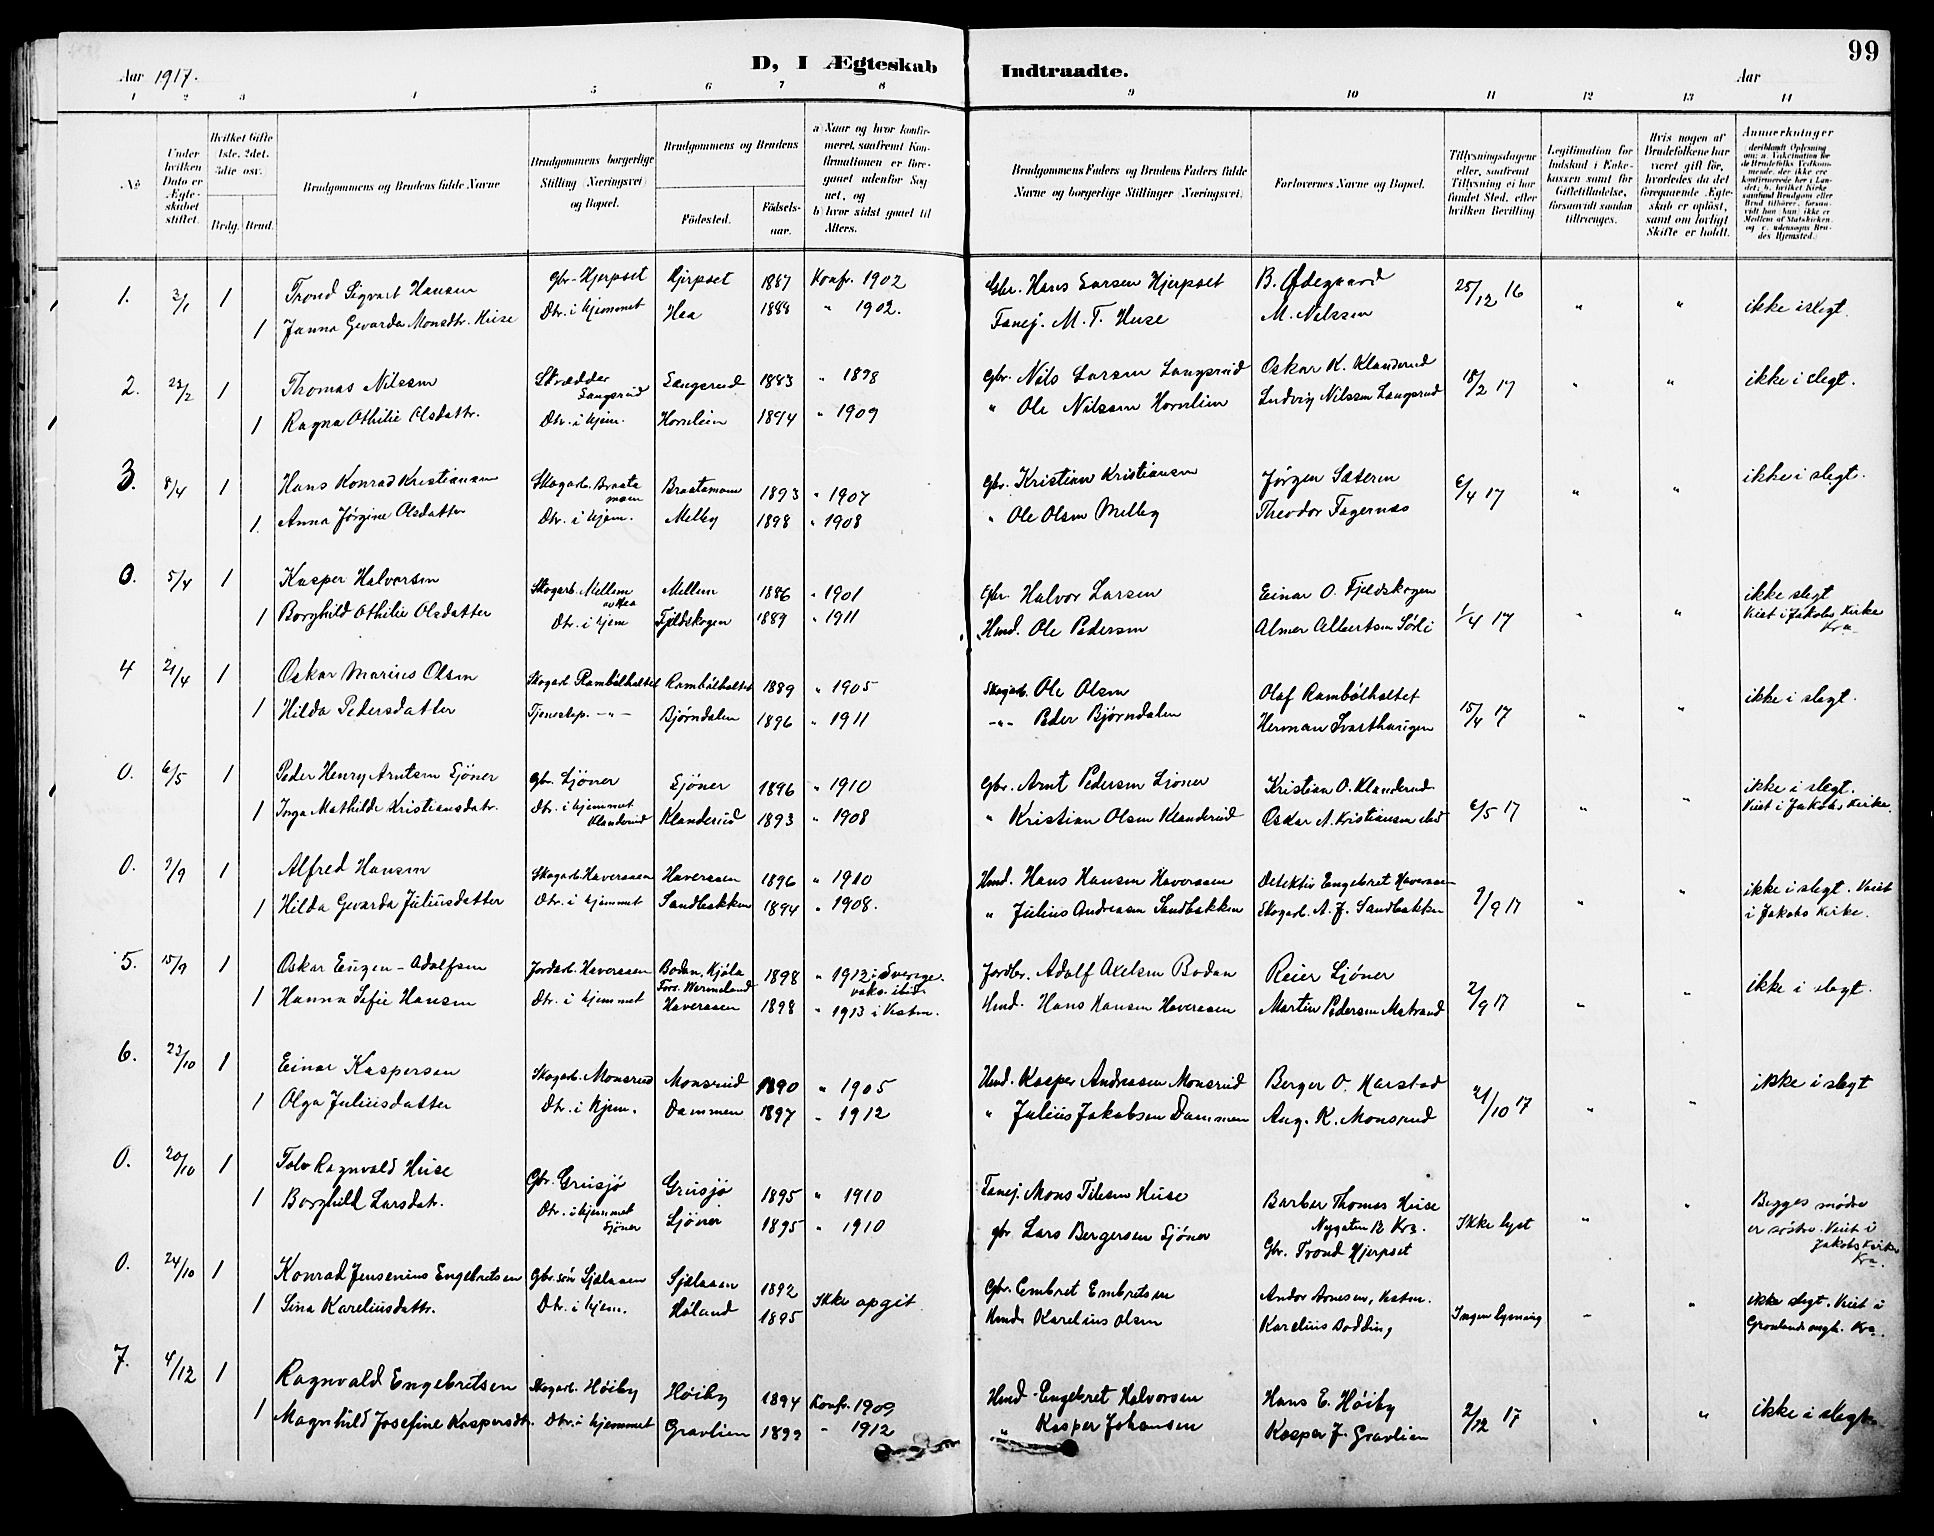 99
Aar 1917. D, I Ægteskab Indtraadte. Aar
1 2 3 4 5 6 7 8 9 10 11 12 13 14
No
Under hvilken Dato er Ægteskabet stiftet.
Hvilket Gifte 1ste, 2det, 3die osv.
Brdg. Brud.
Brudgommens og Brudens fulde Navne
Brudgommens borgerlige Stilling (Næringsvei) og Bopæl.
Brudgommens og Brudens
Födested. Födselsaar.
a) Naar og hvor konfirmeret, saafremt Konfirmationen er foregaaet udenfor Sognet, og
b) hvor sidst gaaet til Alters.
Brudgommens Faders og Brudens Faders fulde Navne og borgerlige Stillinger (Næringsvei)
Forlovernes Navne og Bopæl.
Tillysningsdagene eller, saafremt Tillysning ei har fundet Sted, efter hvilken Bevilling
Legitimation for Indskud i Enkekassen samt for Giftetilladelse, forsaavidt saadan tiltrænges.
Hvis nogen af Brudefolkene har været gift før, hvorledes da det foregaaende Ægteskab er opløst, samt om lovligt Skifte er holdt.
Anmærkninger
1. 2/1 1 Trond Sigvart Hansen Gbr. Hjerpset Hjerpset 1887 Konfr. 1902 Gbr. Hans Larsen Hjerpset B. Ødegaard 25/12 16 " " ikke i slegt.
1 Janna Gevarda Monsdtr. Huse Dtr. i hjemmet Hea 1888 " 1902. Fanej. M. T. Huse M. Nilssen
2. 23/2 1 Thomas Nilssen Skrædder Langsrud Langsrud 1883 " 1898 Gbr. Nils Larsen Langsrud Oskar K. Klanderud 18/2 17 " " ikke i slegt.
1 Ragna Othilie Olsdattr. Dtr. i hjem. Hornlien 1894 " 1909 " Ole Nilssen Hornlien Ludvig Nilssen Langsrud
3. 8/4 1 Hans Konrad Kristiansen Skogarb. Braatamoen Braatamoen 1893 " 1907 Gbr. Kristian Kristiansen Jørgen Sæteren 6/4 17 " " ikke i slegt.
1. Anna Jørgine Olsdatter Dtr. i hjem. Melby 1898 " 1908 " Ole Olsen Melby Theodor Fagernæs
0. 5/4 1 Kasper Halvorsen Skogarb. Mellem Mellem 1886 " 1901 Gbr. Halvor Larsen Einar O. Fjeldskogen 1/4 17 " " ikke slegt
1 Borghild Othilie Olsdatter Dtr. i hjem Fjeldskogen 1889 " 1911 Hmd. Ole Pedersen Almer Albertsen Sörli Viet i Jakobs Kirke Kra
4 21/4 1 Oskar Marius Olsen Skogarb. Rambölholtet Rambölholtet 1889 " 1905 Skogarb. Ole Olsen Olaf Rambölholtet 15/4 17 " " ikke i slegt.
1 Hilda Pedersdatter Tjenestep. -"- Bjørndalen 1896 " 1911 -"- Peder Bjørndalen Herman Svarthusigen
0. 6/5 1 Peder Henry Arntsen Sjöner Gbr. Sjöner Sjöner 1896 " 1910 Gbr. Arnt Pedersen Sjöner Kristian O. Klanderud 6/5 17 " " ikke i slegt.
1 Inga Mathilde Kristiansdatr. Dtr. i hjemmet Klanderud Klanderud 1893 " 1908 " Kristian Olsen Klanderud Oskar A. Kristiansen Viet i Jakobs Kirke.
0. 2/9 1 Alfred Hansen Skogarb. Haveraaen Haveraaen 1896 " 1910 Hmd. Hans Hansen Haveraaen Detektiv Engebret Haveraaen 2/9 17 " " ikke i slegt. Viet
1 Hilda Gevarda Juliusdatter Dtr. i hjemmet Sandbakken 1894 " 1908. " Julius Andreasen Sandbakken Skogarb. A. J. Sandbakken i Jakobs Kirke.
5. 15/9 1 Oskar Eugen - Adolfsen Jordarb. Haveraaen Bodan, Kjöla Fors. Wermeland 1898 " 1912 i Sverige. vaks. ibid. Jordbr. Adolf Axelsen Bodan Reier Sjöner 2/9 17 " " ikke i slegt.
1 Hanna Sofie Hansen Dtr. i hjemmet Haveraaen 1898 " 1913 i Vestm. Hmd. Hans Hansen Haveraaen Martin Pedersen Matrand
6. 22/10 1 Einar Kaspersen Skogarb. Monsrud Monsrud 1890 " 1905 Hmd. Kasper Andreasen Monsrud Berger O. Harstad 21/10 17 " " ikke i slegt
1 Olga Juliusdatter Dtr. i hjem. Dammen 1897 " 1912 " Julius Jakobsen Dammen Aug. K. Monsrud
0. 20/10 1 Tolv Ragnvald Huse Gbr. Grusjö Grusjö 1895 " 1910 Fanej. Mons Tilesen Huse Barber Thomas Huse Nygaten Kra. Ikke lyst " " Begges mødre
1 Borghild Larsdatr. Dtr. i hjemmet Sjöner Sjöner 1895 " 1910 Gbr Lars Bergersen Sjöner Gbr. Trond Hjerpset er søstre. Viet i Jakobs Kirke Kra.
0. 24/10 1 Konrad Jensenius Engebretsen Gbr. søn Sjølaaen Sjølaaen 1892 Ikke opgit. Gbr. Embret Embretsen Andor Arnesen, Vestm. Ingen lysning " " ikke slegt. Viet i
1 Sina Kareliusdattr. Dtr. i hjem. Høland 1895 Hmd. Karelius Olsen Karelius Bodding, Grønlands mgh. Kra.
7. 4/12 1 Ragnvald Engebretsen Skogarb. Höiby Höiby 1894 Konfr. 1909 Hmd. Engebret Halvorsen Hans E. Höiby 2/12 17 " " ikke i slegt
1 Magnhild Josefine Kaspersdtr. Dtr. i hjemmet Gravlien 1899 " 1912 " Kasper Johansen Kasper J. Gravlien